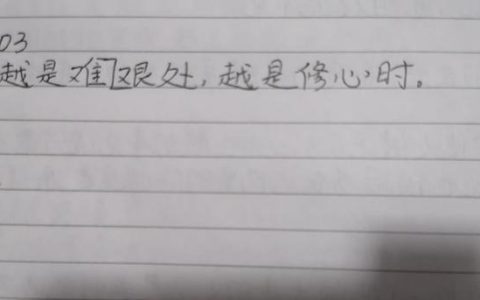 03
越是难艰处，越是修心时。